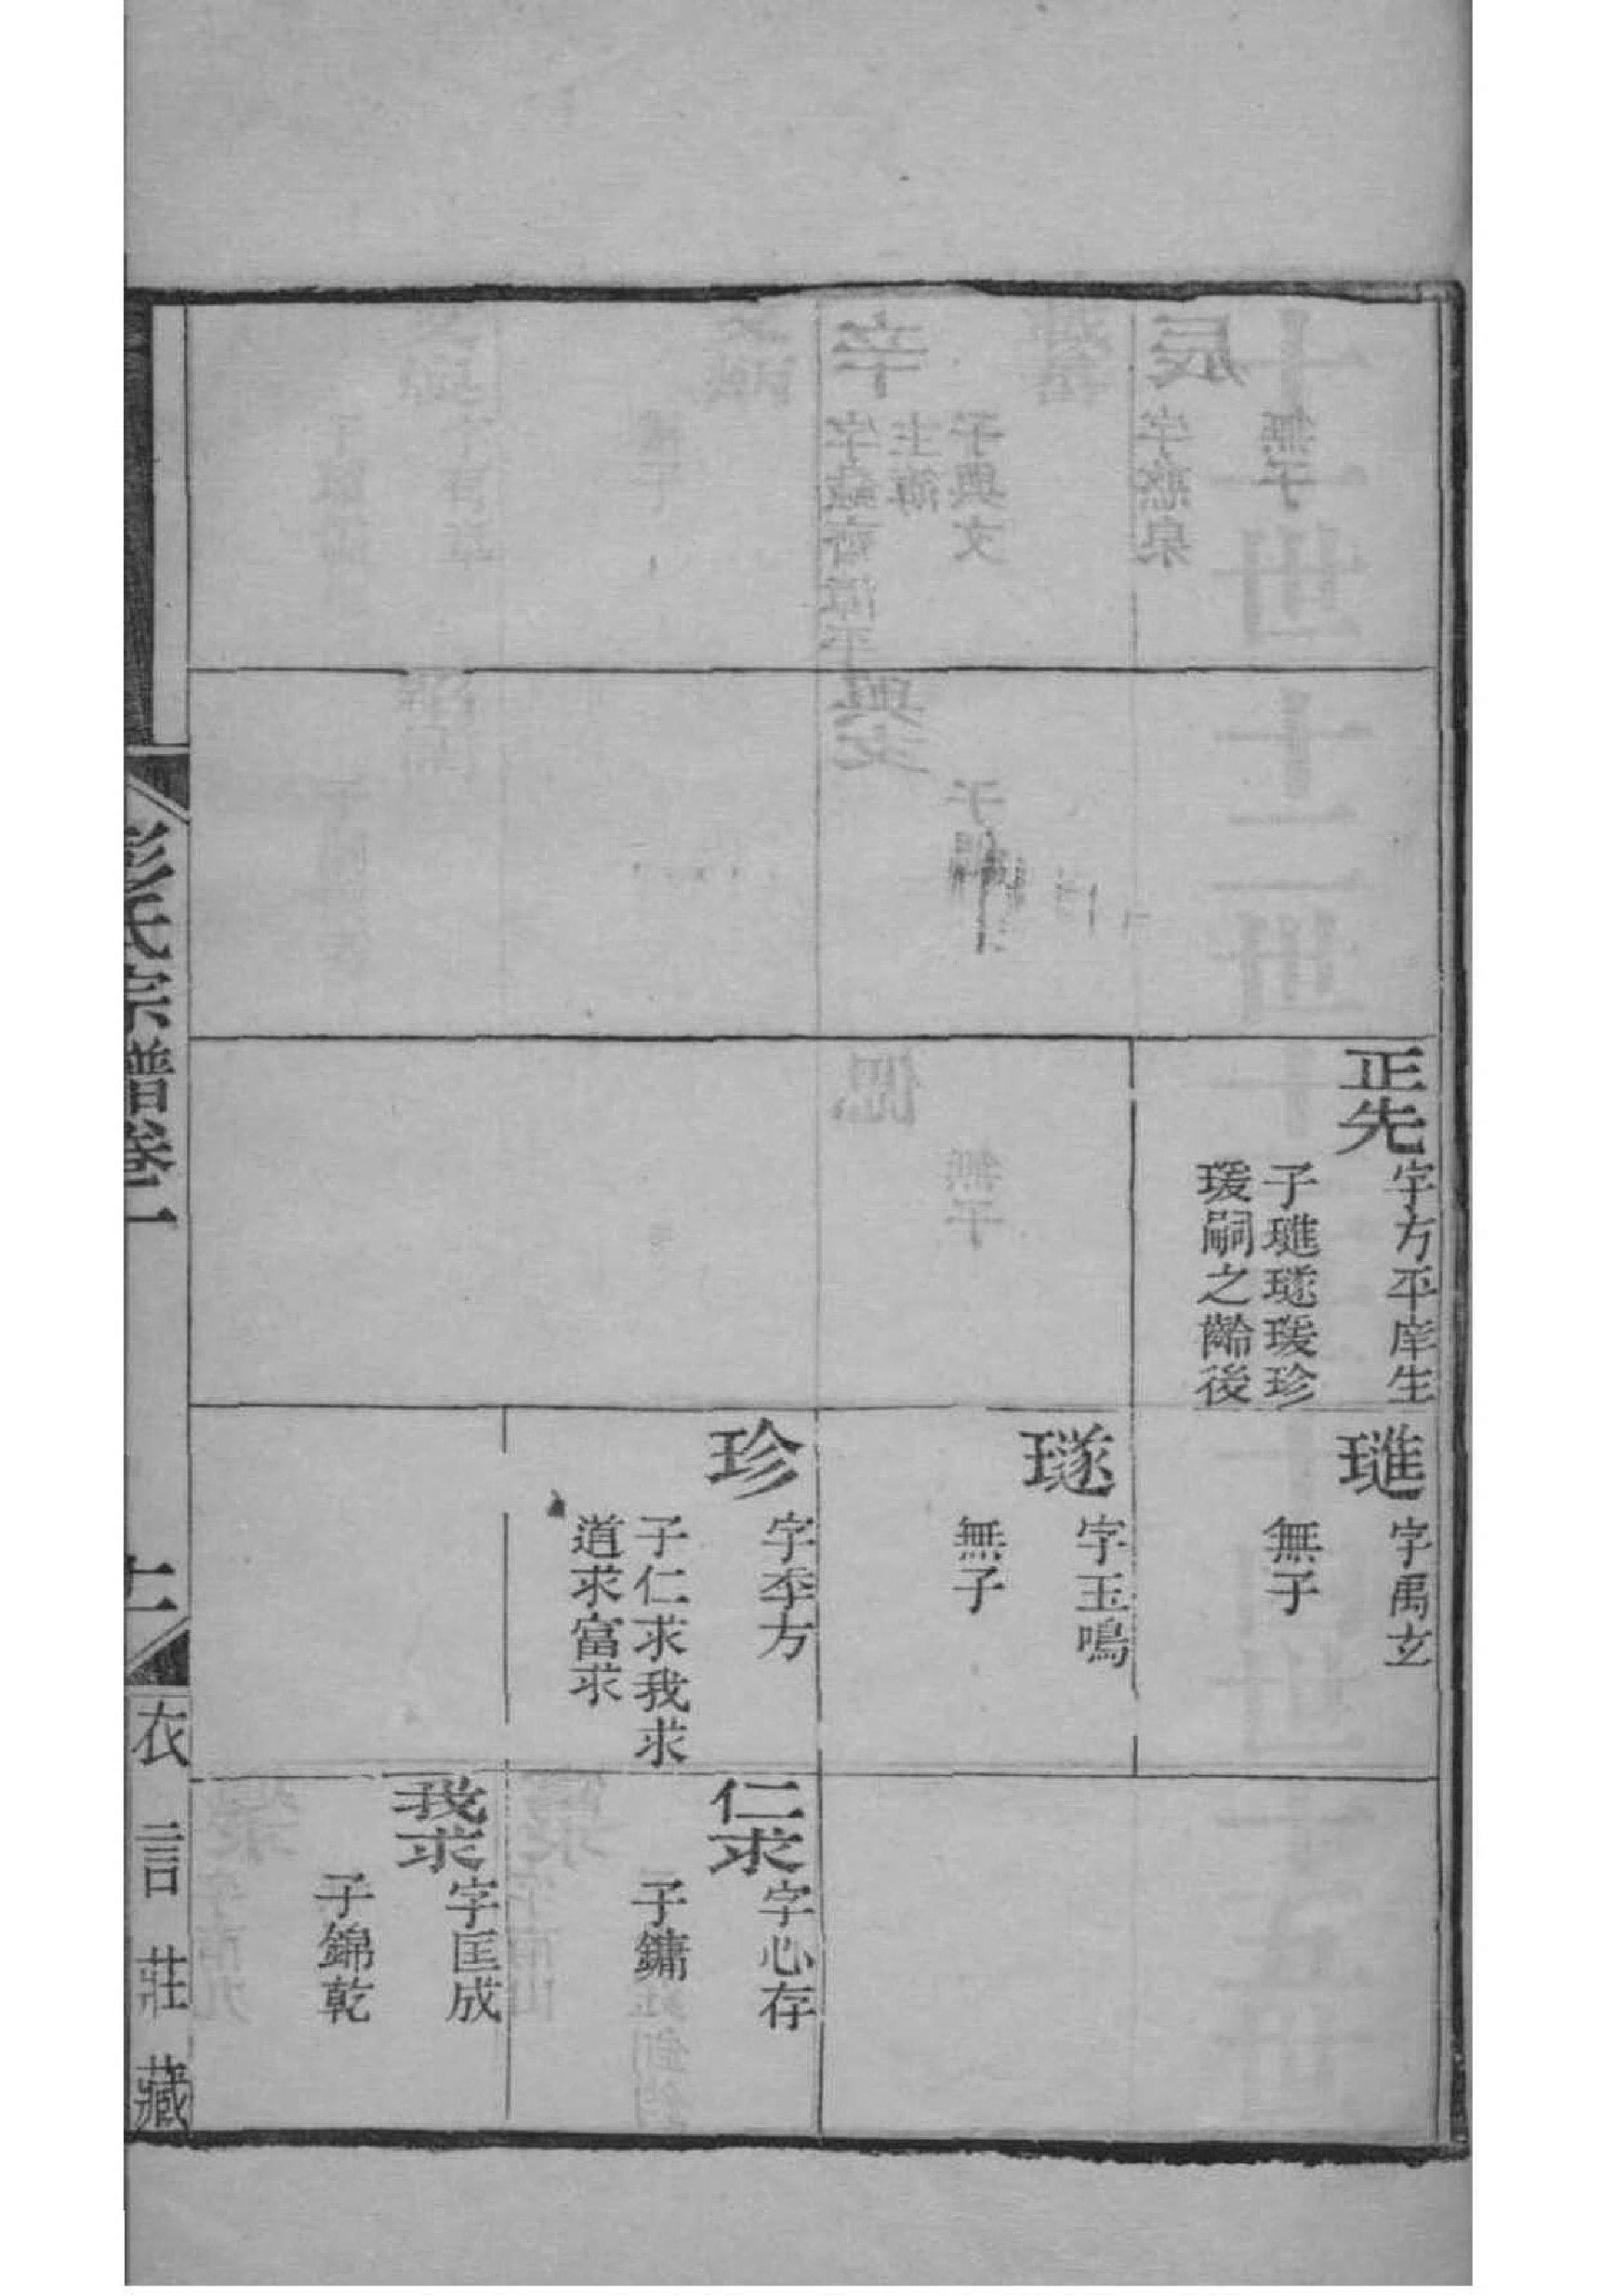 正先
字方平庠生
子琎璲瑗珍
瑗嗣之齡後
琎
字禹玄
無子
璲
字玉鳴
無子
珍
字季方
子仁求我求
道求富求
仁求
字心存
子鏞
我求
字匡成
子錦乾
彭氏宗譜卷一
十二
衣言莊藏